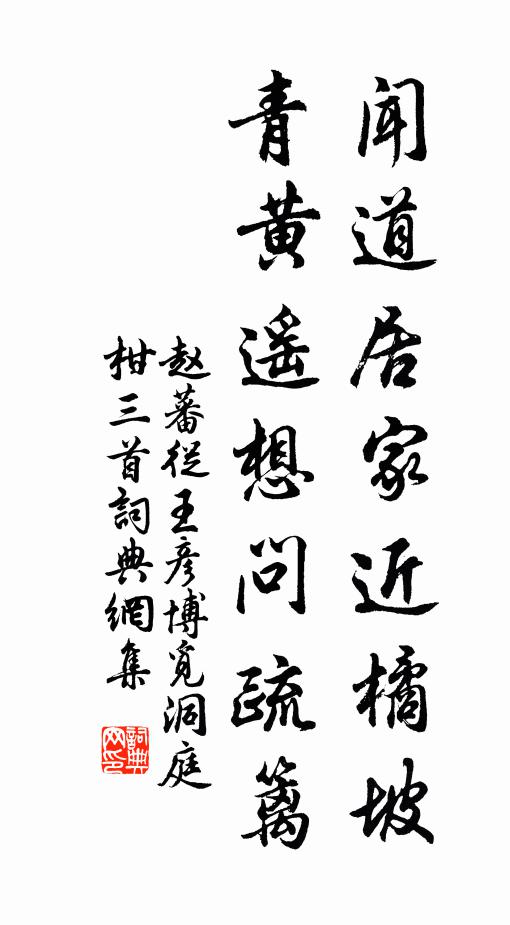 闻道居家近橘坡
青黄遥想问疏篱
赵蕃從王彦博觅洞庭
柑三首詞典網集
詞典
网印